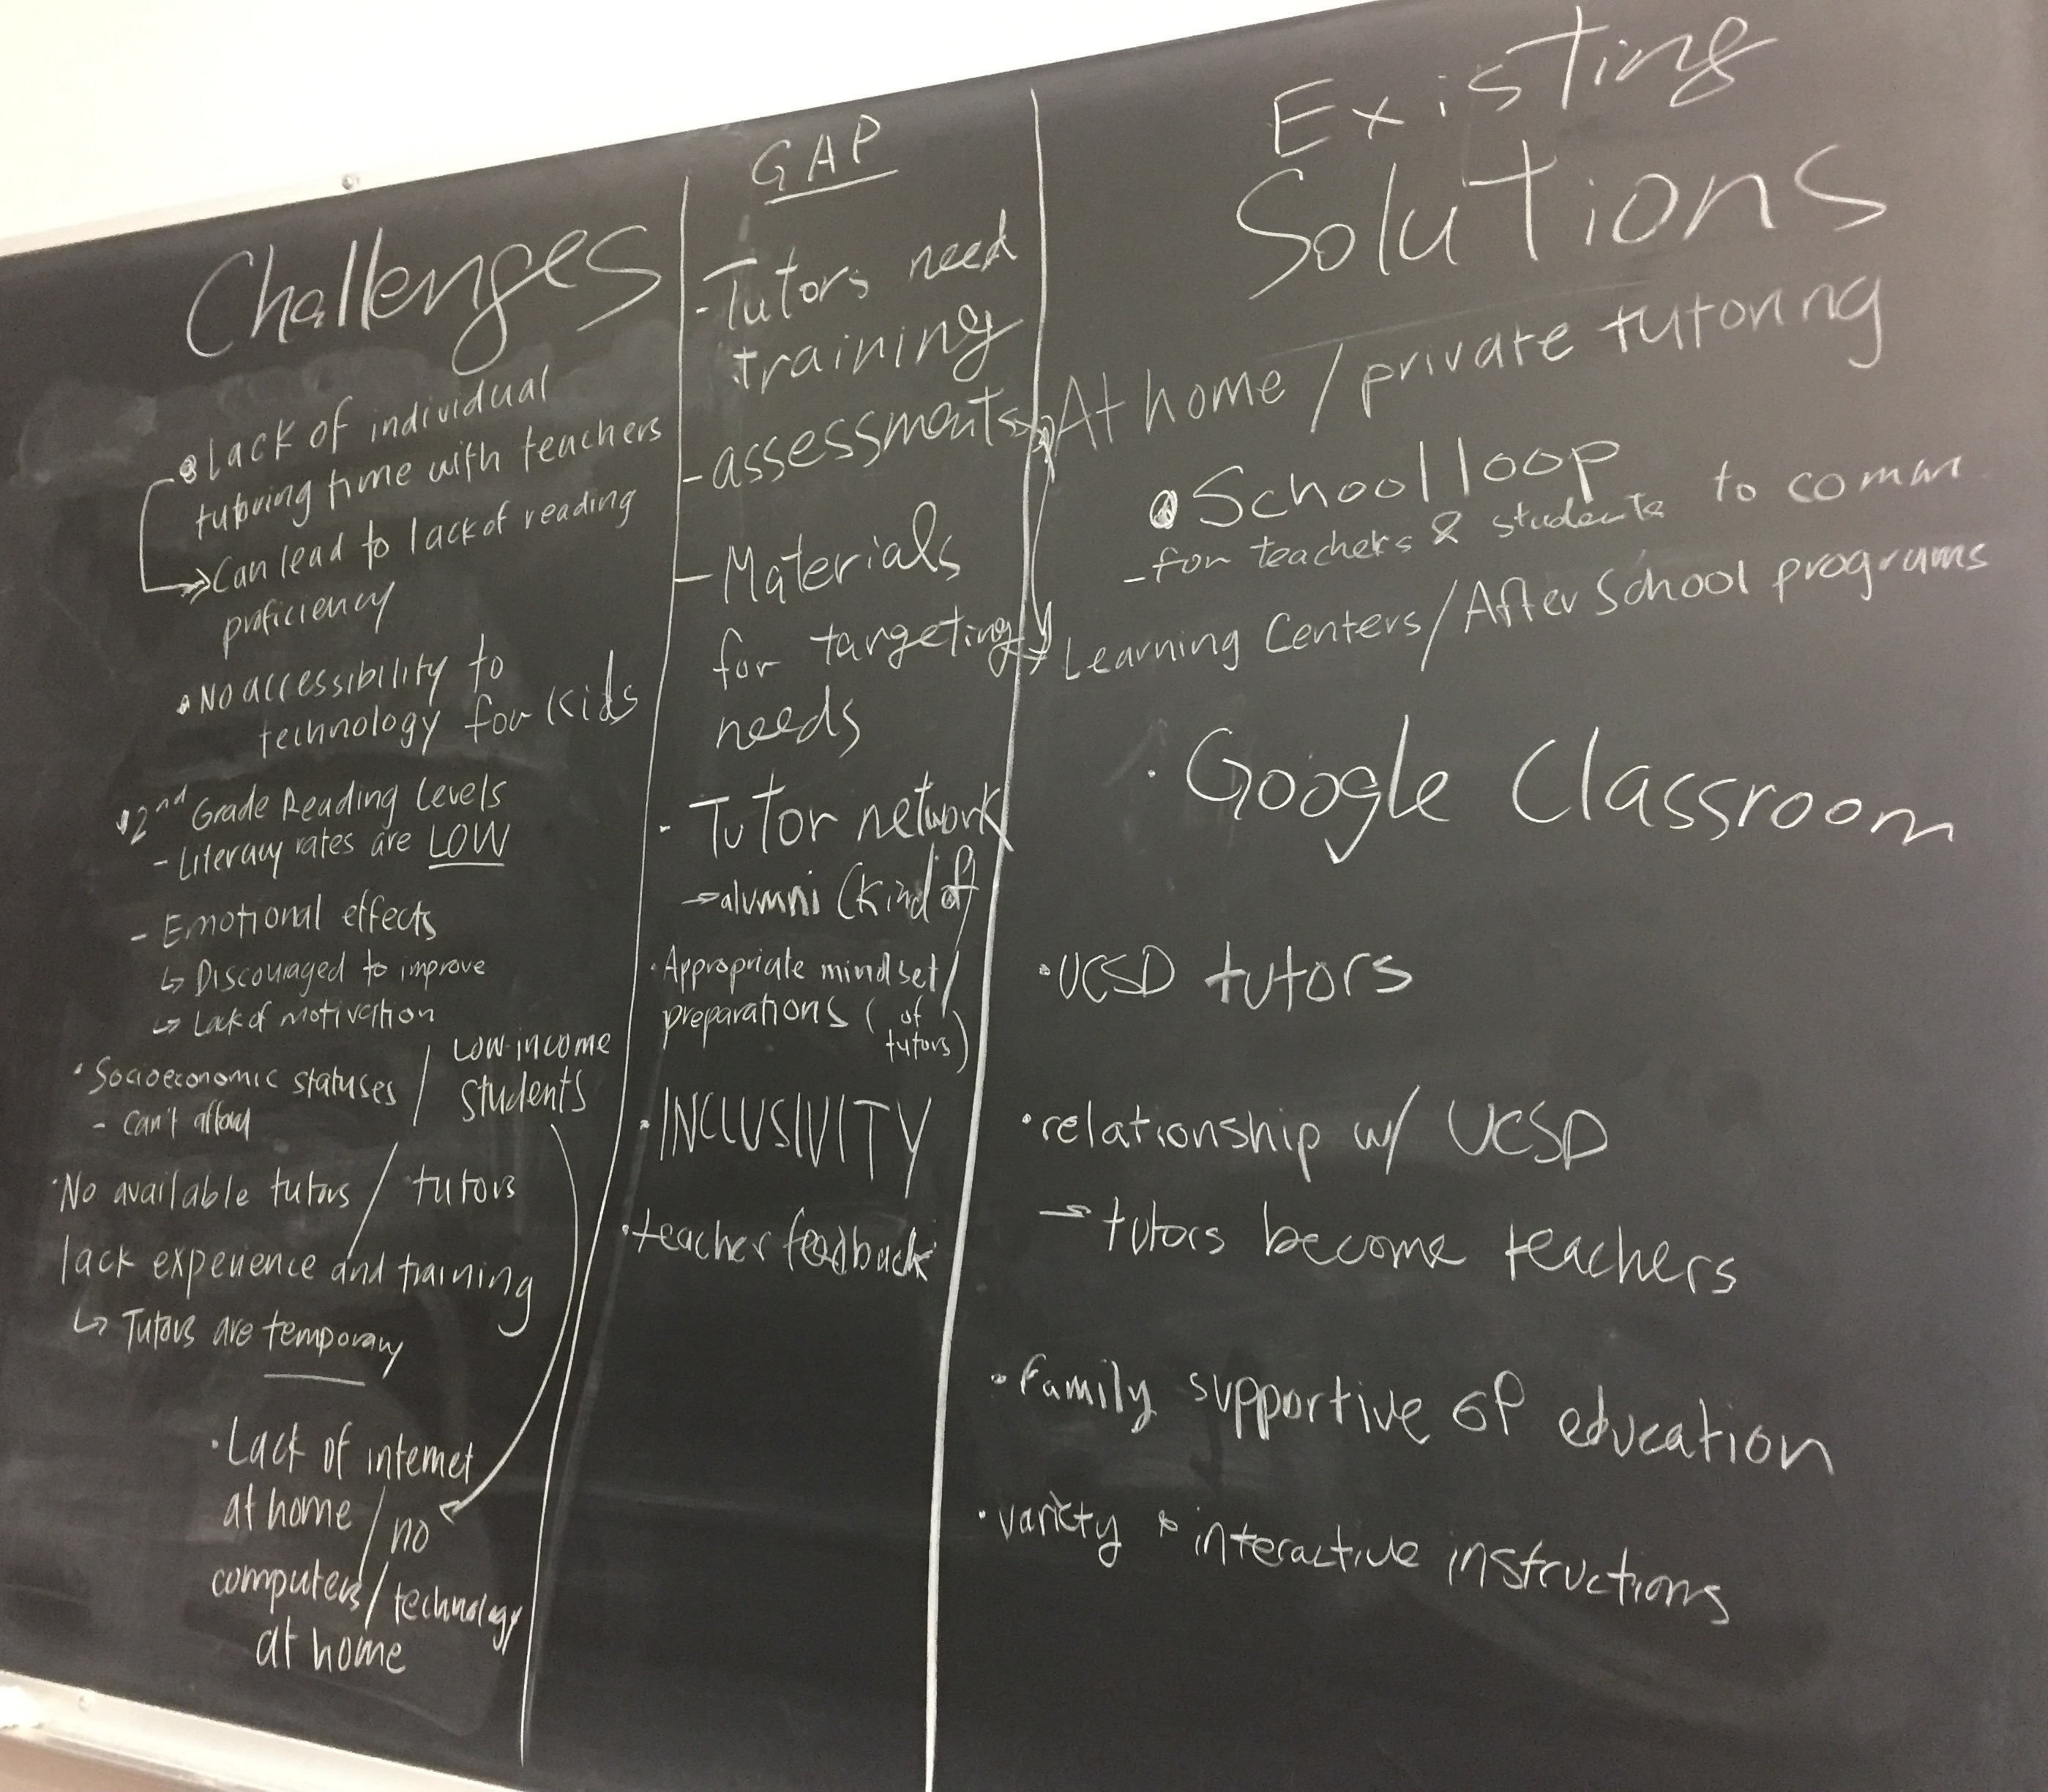 Challenges
• Lack of individual
tutoring time with teachers
→ Can lead to lack of reading
proficiency
• No accessibility to
technology for kids
• 2nd Grade Reading Levels
- Literacy rates are LOW
- Emotional effects
↳ Discouraged to improve
↳ Lack of motivation
• Socioeconomic statuses / Low-income students
- can't afford
• No available tutors / tutors
lack experience and training
↳ Tutors are temporary
• Lack of internet
at home / no
computers / technology
at home
GAP
- Tutors need
training
- assessments
- Materials
for targeting
needs
- Tutor network
→ alumni (kind of)
• Appropriate mindset/
preparations (of tutors)
• INCLUSIVITY
• teacher feedback
Existing
Solutions
At home / private tutoring
• School loop
- for teachers & students to comm
Learning Centers / After School programs
• Google Classroom
• UCSD tutors
• relationship w/ UCSD
→ tutors become teachers
• family supportive of education
• variety & interactive instructions